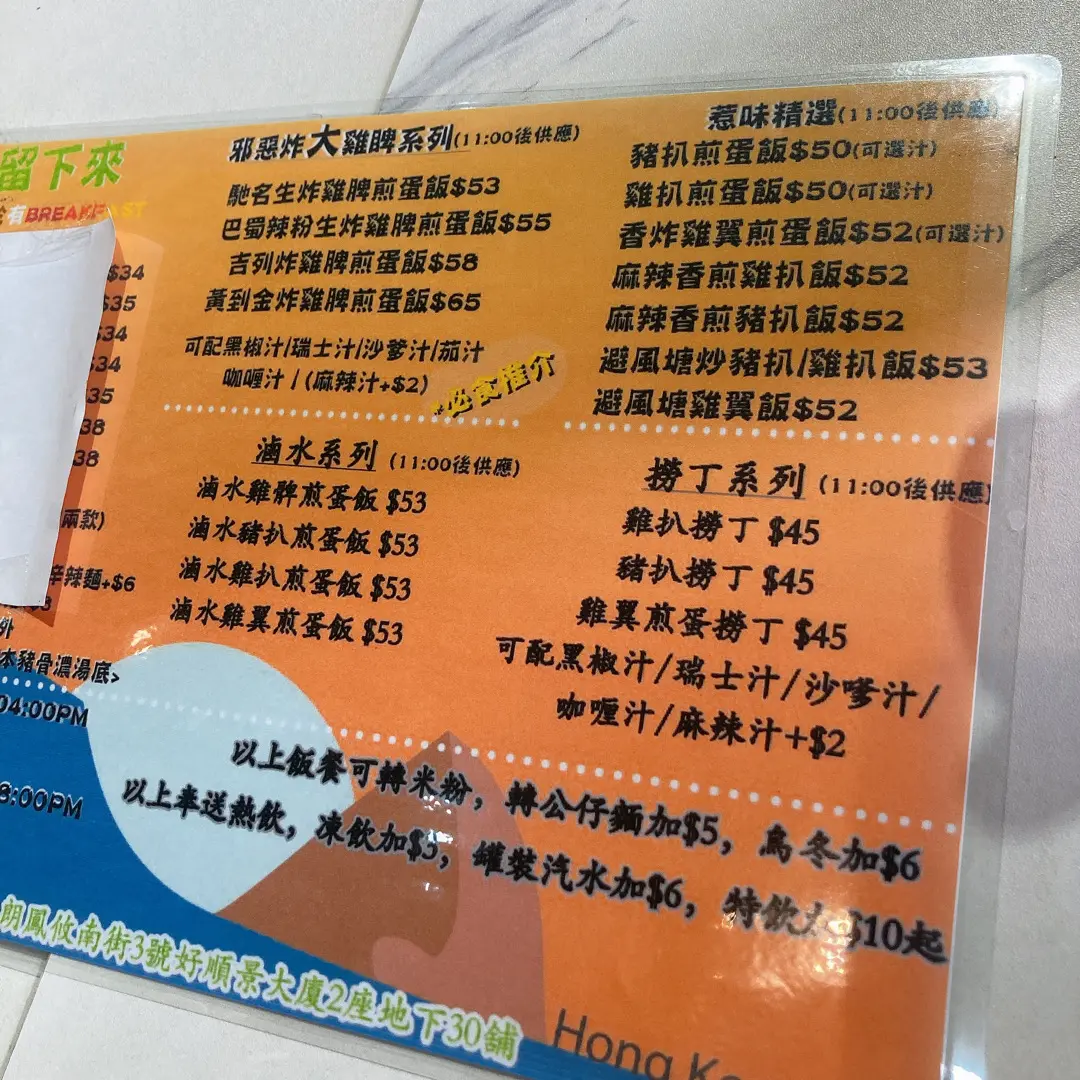 留下來
有BREAKFAST
$34
$35
$34
$34
35
38
38
兩款)
辛辣麵+$6
外
本豬骨濃湯底>
04:00PM
8:00PM
邪惡炸大雞脾系列(11:00後供應)
馳名生炸雞脾煎蛋飯$53
巴蜀辣粉生炸雞脾煎蛋飯$55
吉列炸雞脾煎蛋飯$58
黃到金炸雞脾煎蛋飯$65
可配黑椒汁/瑞士汁/沙爹汁/茄汁
咖喱汁/(麻辣汁+$2)
必食推介
惹味精選(11:00後供應)
豬扒煎蛋飯$50(可選汁)
雞扒煎蛋飯$50(可選汁)
香炸雞翼煎蛋飯$52(可選汁)
麻辣香煎雞扒飯$52
麻辣香煎豬扒飯$52
避風塘炒豬扒/雞扒飯$53
避風塘雞翼飯$52
滷水系列 (11:00後供應)
滷水雞髀煎蛋飯 $53
滷水豬扒煎蛋飯 $53
滷水雞扒煎蛋飯 $53
滷水雞翼煎蛋飯 $53
撈丁系列 (11:00後供應)
雞扒撈丁 $45
豬扒撈丁 $45
雞翼煎蛋撈丁 $45
可配黑椒汁/瑞士汁/沙嗲汁/
咖喱汁/麻辣汁+$2
以上飯餐可轉米粉，轉公仔麵加$5，烏冬加$6
以上奉送熱飲，凍飲加$3，罐裝汽水加$6，特飲加$10起
朗鳳攸南街3號好順景大廈2座地下30舖
Hong K